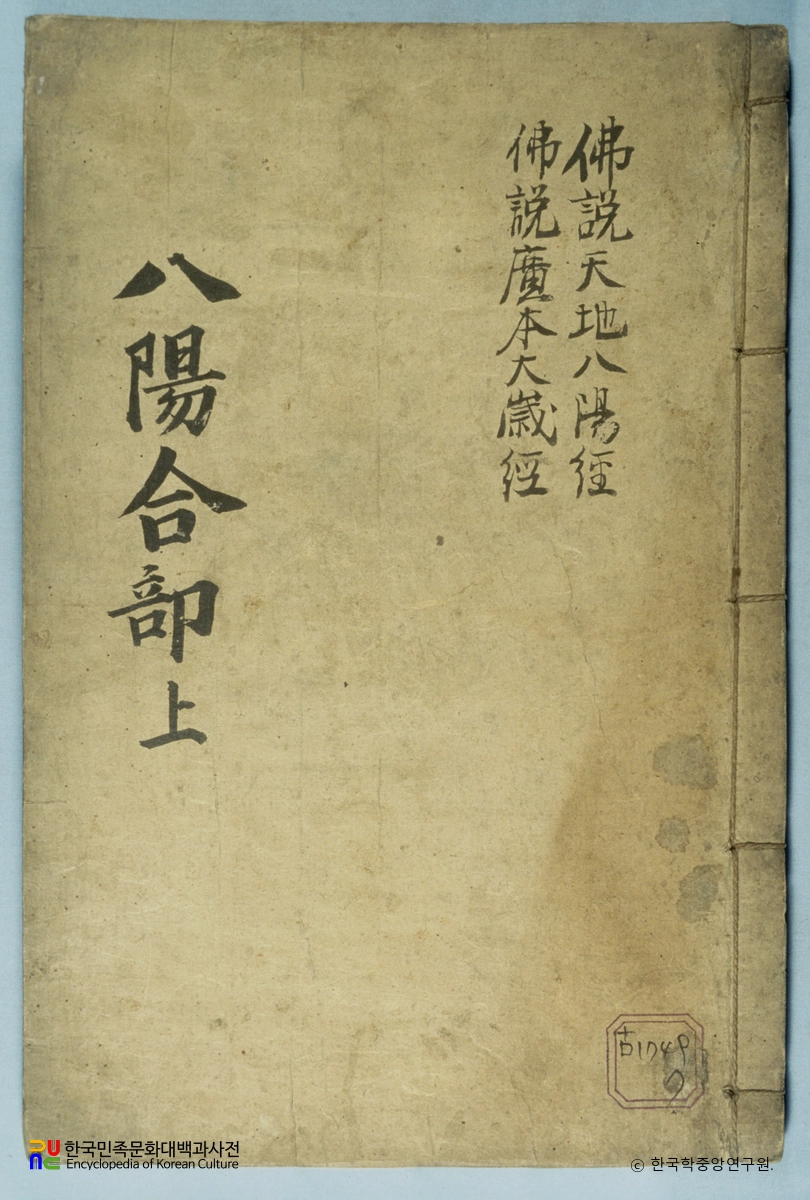 佛說天地八陽經
佛說廣本大歲經
八陽合部上
古1749
한국민족문화대백과사전
Encyclopedia of Korean Culture
© 한국학중앙연구원.